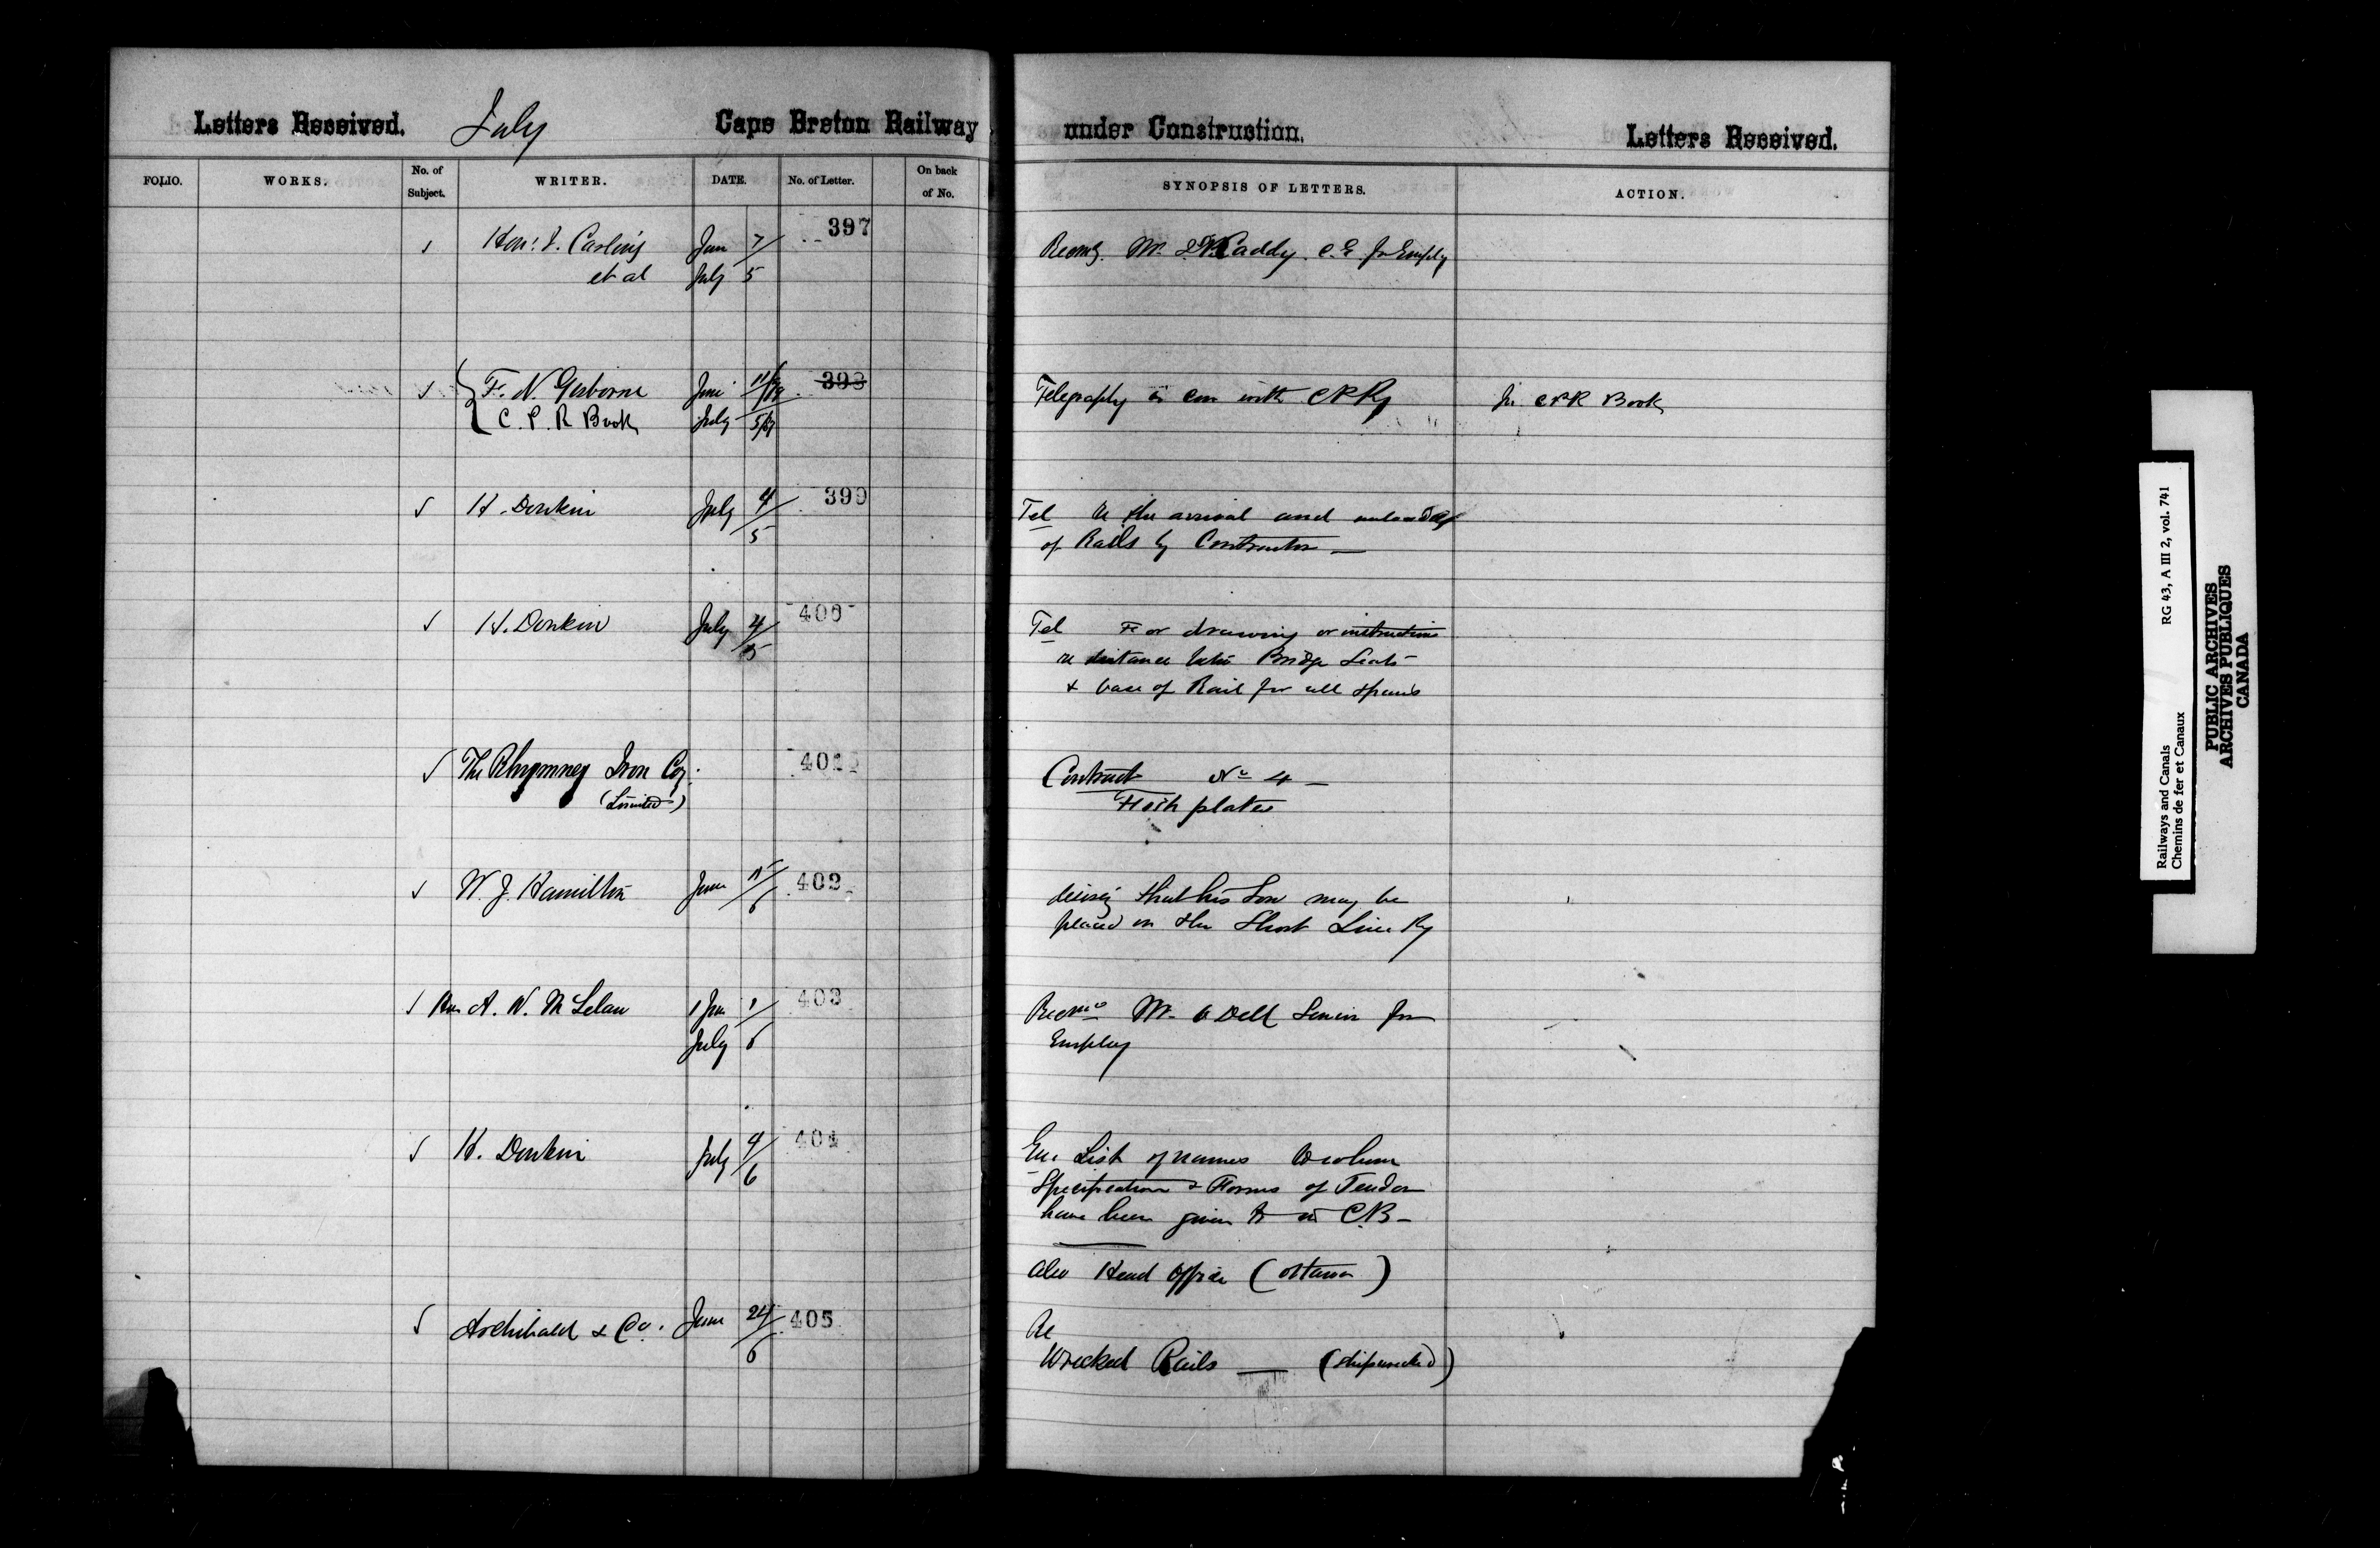 Letters Received. July Cape Breton Railway under Construction. Letters Received.
FOLIO. WORKS. No. of Subject. WRITER. DATE. No. of Letter. On back of No. SYNOPSIS OF LETTERS. ACTION.
Hon: J. Carling Jun 7 397 Recomg. Mr. Caddy. C.E. for Employ
et al July 5
F. N. Gisborne June 398 Telegraphy in con with CPRy In CPR Book
C. P. R Book July 5/87
H. Donkin July 4/5 399 Tel re the arrival and unloadg
of Rails by Contractor —
H. Donkin July 4/5 400 Tel For drawing or instructions
re distance betn Bridge Seats
& base of Rail for all spans
The Rhymney Iron Coy. 401 Contract No 4 —
(Limited) Fish plates
W. J. Hamilton June 15/6 402 desirg that his Son may be
placed on the Short Line Ry
Hon A. W. McLelan Jun 1 403 Recms Mr. Odell Senior for
July 6 Employ
H. Donkin July 4/6 404 Enc List of names to whom
Specification & Forms of Tender
have been given to in C.B —
Also Head Office (Ottawa)
Archibald & Co. June 24/6 405 Re
Wrecked Rails — (shipwrecked)
Railways and Canals RG 43, A III 2, vol. 741
Chemins de fer et Canaux
PUBLIC ARCHIVES
ARCHIVES PUBLIQUES
CANADA